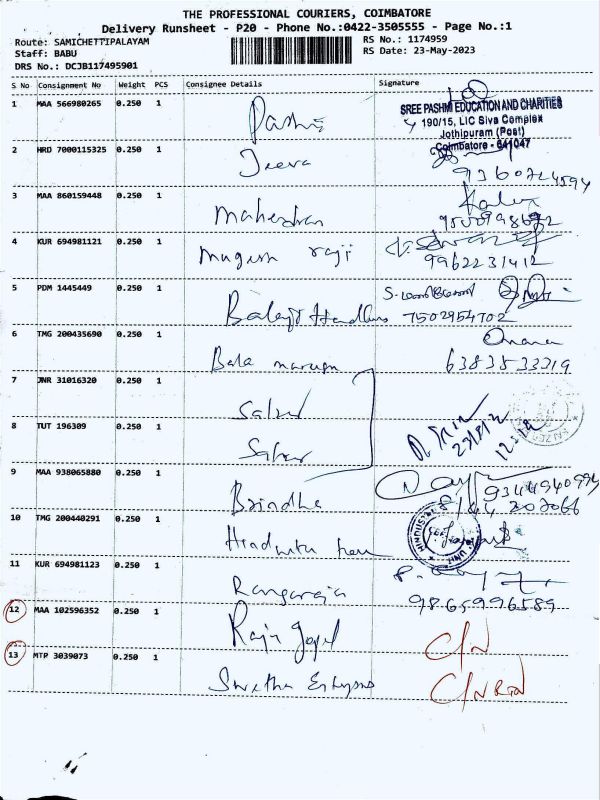 THE PROFESSIONAL COURIERS, COIMBATORE
Delivery Runsheet - P20 - Phone No.:0422-3505555 - Page No.:1
Route: SAMICHETTIPALAYAM
RS No.: 1174959
Staff: BABU
RS Date: 23-May-2023
DRS No.: DCJB117495901
S No Consignment No Weight PCS Consignee Details Signature
1 MAA 566980265 0.250 1
SREE PASHMI EDUCATION AND CHARITIES
190/15, LIC Siva Complex
Jothipuram (Post)
Coimbatore - 641047
2 HRD 7000115325 0.250 1 Jeeva
9360724594
3 MAA 860159448 0.250 1 Maheshan
4 KUR 694981121 0.250 1 Mugesh raji
9962231412
5 PDM 1445449 0.250 1 Balaji
7502954702
6 TMG 200435690 0.250 1 Bala
6383533319
7 JNR 31016320 0.250 1
8 TUT 196309 0.250 1
9 MAA 938065880 0.250 1 Brindha
10 TMG 200440291 0.250 1
11 KUR 694981123 0.250 1 Rangaraja
9865996589
12 MAA 102596352 0.250 1 Raja Gopal C/N
13 MTP 3039073 0.250 1 Swetha C/N RTN